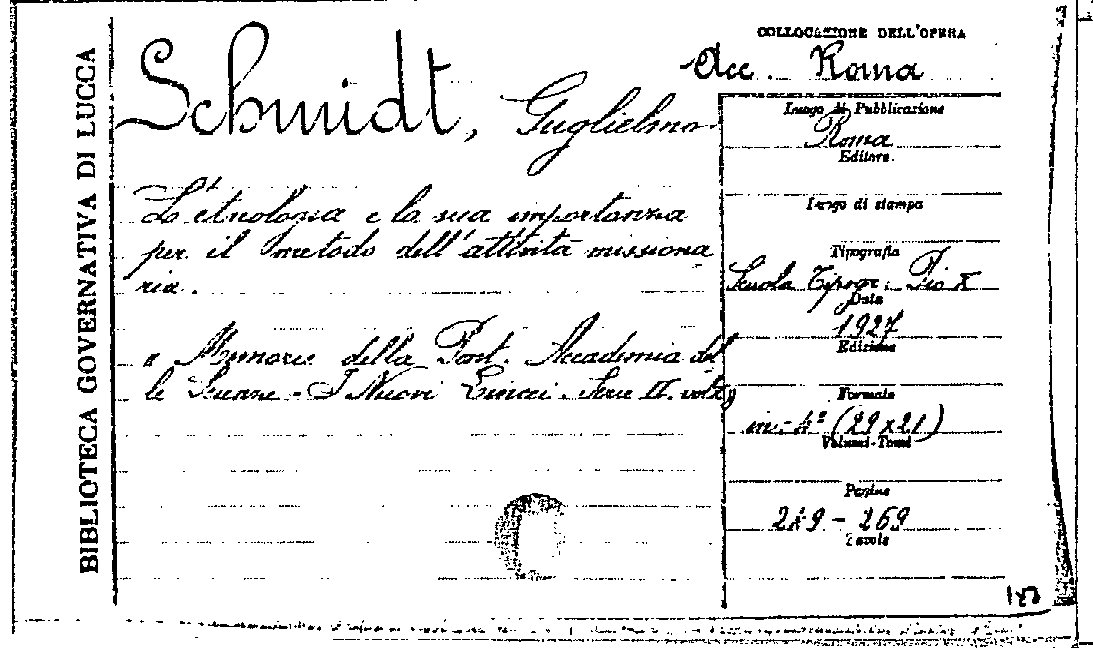 BIBLIOTECA GOVERNATIVA DI LUCCA
Schmidt, Guglielmo
L'etnologia e la sua importanza
per il metodo dell'attività missiona
ria.
« Memorie della Pont. Accademia del
le Scienze - I Nuovi Lincei. Serie II. vol.
COLLOCAZIONE DELL'OPERA
Acc. Roma
Luogo di Pubblicazione
Roma
Editore.
Luogo di stampa
Tipografia
Scuola Tipogr. Pio X
Data
1927
Edizione
Formato
in-4º (29x21)
Volumi-Tomi
Pagine
249 - 269
Tavole